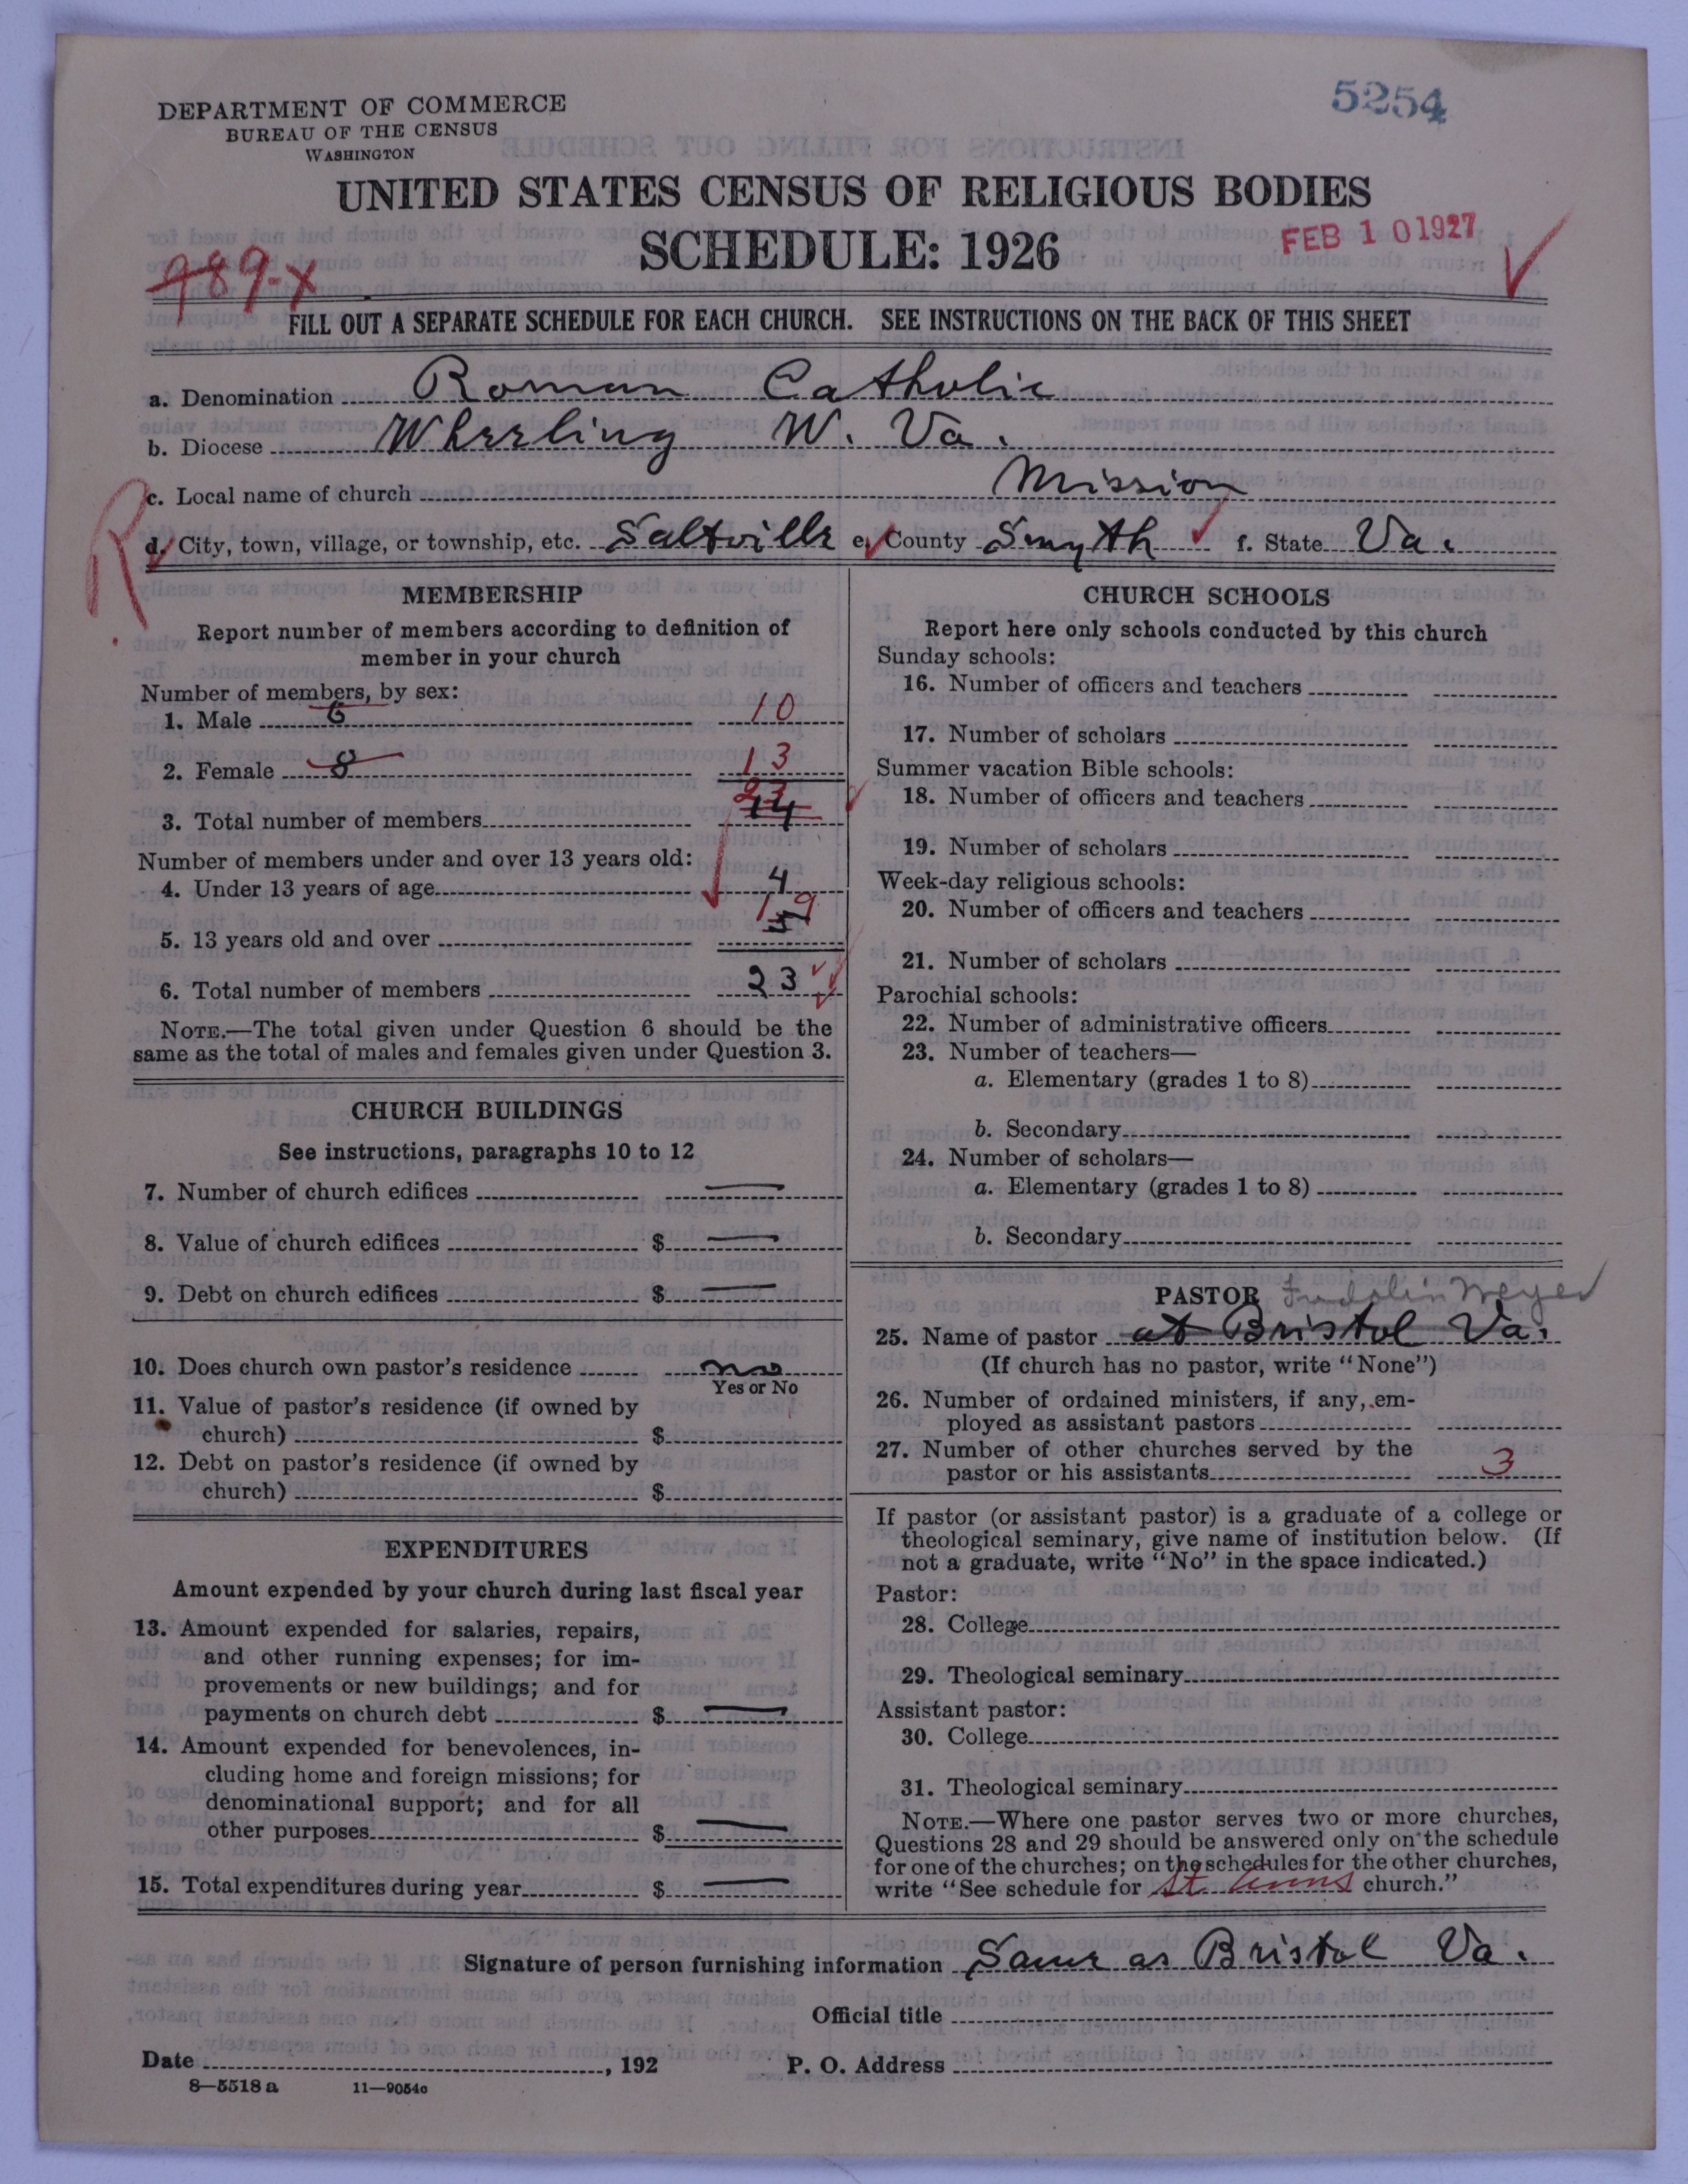 5254
DEPARTMENT OF COMMERCE
BUREAU OF THE CENSUS
WASHINGTON
UNITED STATES CENSUS OF RELIGIOUS BODIES
SCHEDULE: 1926
FEB 10 1927
989-X
FILL OUT A SEPARATE SCHEDULE FOR EACH CHURCH. SEE INSTRUCTIONS ON THE BACK OF THIS SHEET
a. Denomination Roman Catholic
b. Diocese Wheeling W. Va.
c. Local name of church Mission
R
d. City, town, village, or township, etc. Saltville e. County Smyth f. State Va.
MEMBERSHIP
Report number of members according to definition of
member in your church
Number of members, by sex:
1. Male 6 10
2. Female 8 13
3. Total number of members 23 14
Number of members under and over 13 years old:
4. Under 13 years of age 4
5. 13 years old and over 19
6. Total number of members 23
NOTE.—The total given under Question 6 should be the
same as the total of males and females given under Question 3.
CHURCH BUILDINGS
See instructions, paragraphs 10 to 12
7. Number of church edifices —
8. Value of church edifices $ —
9. Debt on church edifices $ —
10. Does church own pastor's residence no
Yes or No
11. Value of pastor's residence (if owned by
church) $
12. Debt on pastor's residence (if owned by
church) $
EXPENDITURES
Amount expended by your church during last fiscal year
13. Amount expended for salaries, repairs,
and other running expenses; for im-
provements or new buildings; and for
payments on church debt $ —
14. Amount expended for benevolences, in-
cluding home and foreign missions; for
denominational support; and for all
other purposes $ —
15. Total expenditures during year $ —
CHURCH SCHOOLS
Report here only schools conducted by this church
Sunday schools:
16. Number of officers and teachers
17. Number of scholars
Summer vacation Bible schools:
18. Number of officers and teachers
19. Number of scholars
Week-day religious schools:
20. Number of officers and teachers
21. Number of scholars
Parochial schools:
22. Number of administrative officers
23. Number of teachers—
a. Elementary (grades 1 to 8)
b. Secondary
24. Number of scholars—
a. Elementary (grades 1 to 8)
b. Secondary
PASTOR Fridolin Meyer
25. Name of pastor at Bristol Va.
(If church has no pastor, write "None")
26. Number of ordained ministers, if any, em-
ployed as assistant pastors
27. Number of other churches served by the
pastor or his assistants 3
If pastor (or assistant pastor) is a graduate of a college or
theological seminary, give name of institution below. (If
not a graduate, write "No" in the space indicated.)
Pastor:
28. College
29. Theological seminary
Assistant pastor:
30. College
31. Theological seminary
NOTE.—Where one pastor serves two or more churches,
Questions 28 and 29 should be answered only on the schedule
for one of the churches; on the schedules for the other churches,
write "See schedule for St. Anns church."
Signature of person furnishing information Same as Bristol Va.
Official title
Date , 192 P. O. Address
8—5518 a 11—9054c